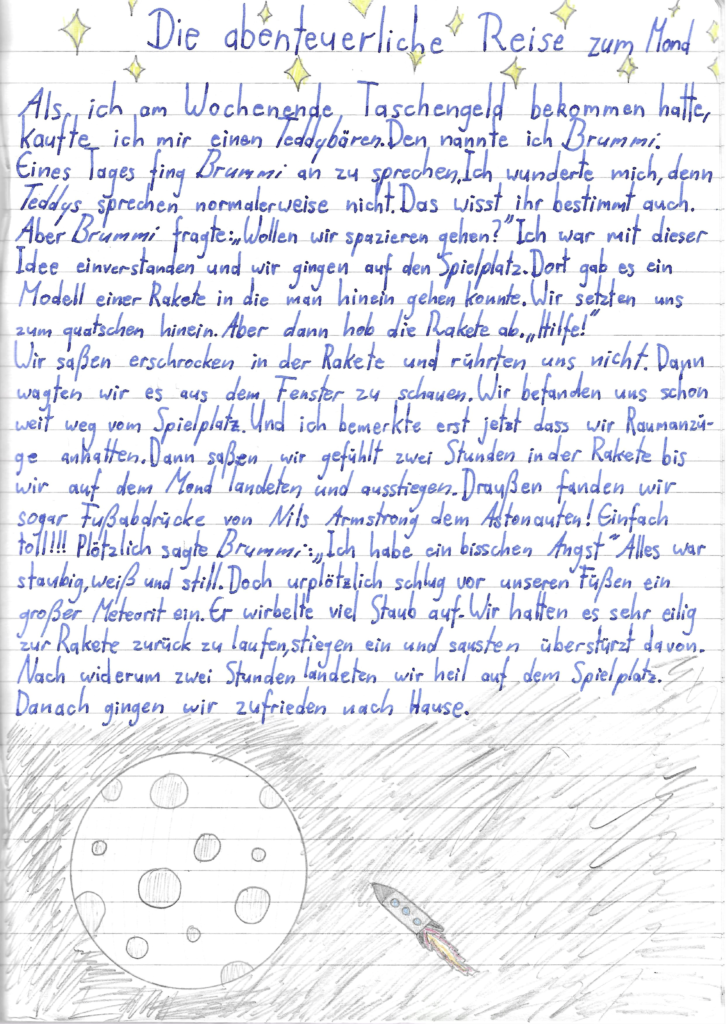 Die abenteuerliche Reise zum Mond
Als ich am Wochenende Taschengeld bekommen hatte,
kaufte ich mir einen Teddybären. Den nannte ich Brummi.
Eines Tages fing Brummi an zu sprechen. Ich wunderte mich, denn
Teddys sprechen normalerweise nicht. Das wisst ihr bestimmt auch.
Aber Brummi fragte: „Wollen wir spazieren gehen?" Ich war mit dieser
Idee einverstanden und wir gingen auf den Spielplatz. Dort gab es ein
Modell einer Rakete in die man hinein gehen konnte. Wir setzten uns
zum quatschen hinein. Aber dann hob die Rakete ab. „Hilfe!"
Wir saßen erschrocken in der Rakete und rührten uns nicht. Dann
wagten wir es aus dem Fenster zu schauen. Wir befanden uns schon
weit weg vom Spielplatz. Und ich bemerkte erst jetzt dass wir Raumanzü-
ge anhatten. Dann saßen wir gefühlt zwei Stunden in der Rakete bis
wir auf dem Mond landeten und ausstiegen. Draußen fanden wir
sogar Fußabdrücke von Nils Armstrong dem Astonauten! Einfach
toll!!! Plötzlich sagte Brummi: „Ich habe ein bisschen Angst" Alles war
staubig, weiß und still. Doch urplötzlich schlug vor unseren Füßen ein
großer Meteorit ein. Er wirbelte viel Staub auf. Wir hatten es sehr eilig
zur Rakete zurück zu laufen, stiegen ein und sausten überstürzt davon.
Nach widerum zwei Stunden landeten wir heil auf dem Spielplatz.
Danach gingen wir zufrieden nach Hause.